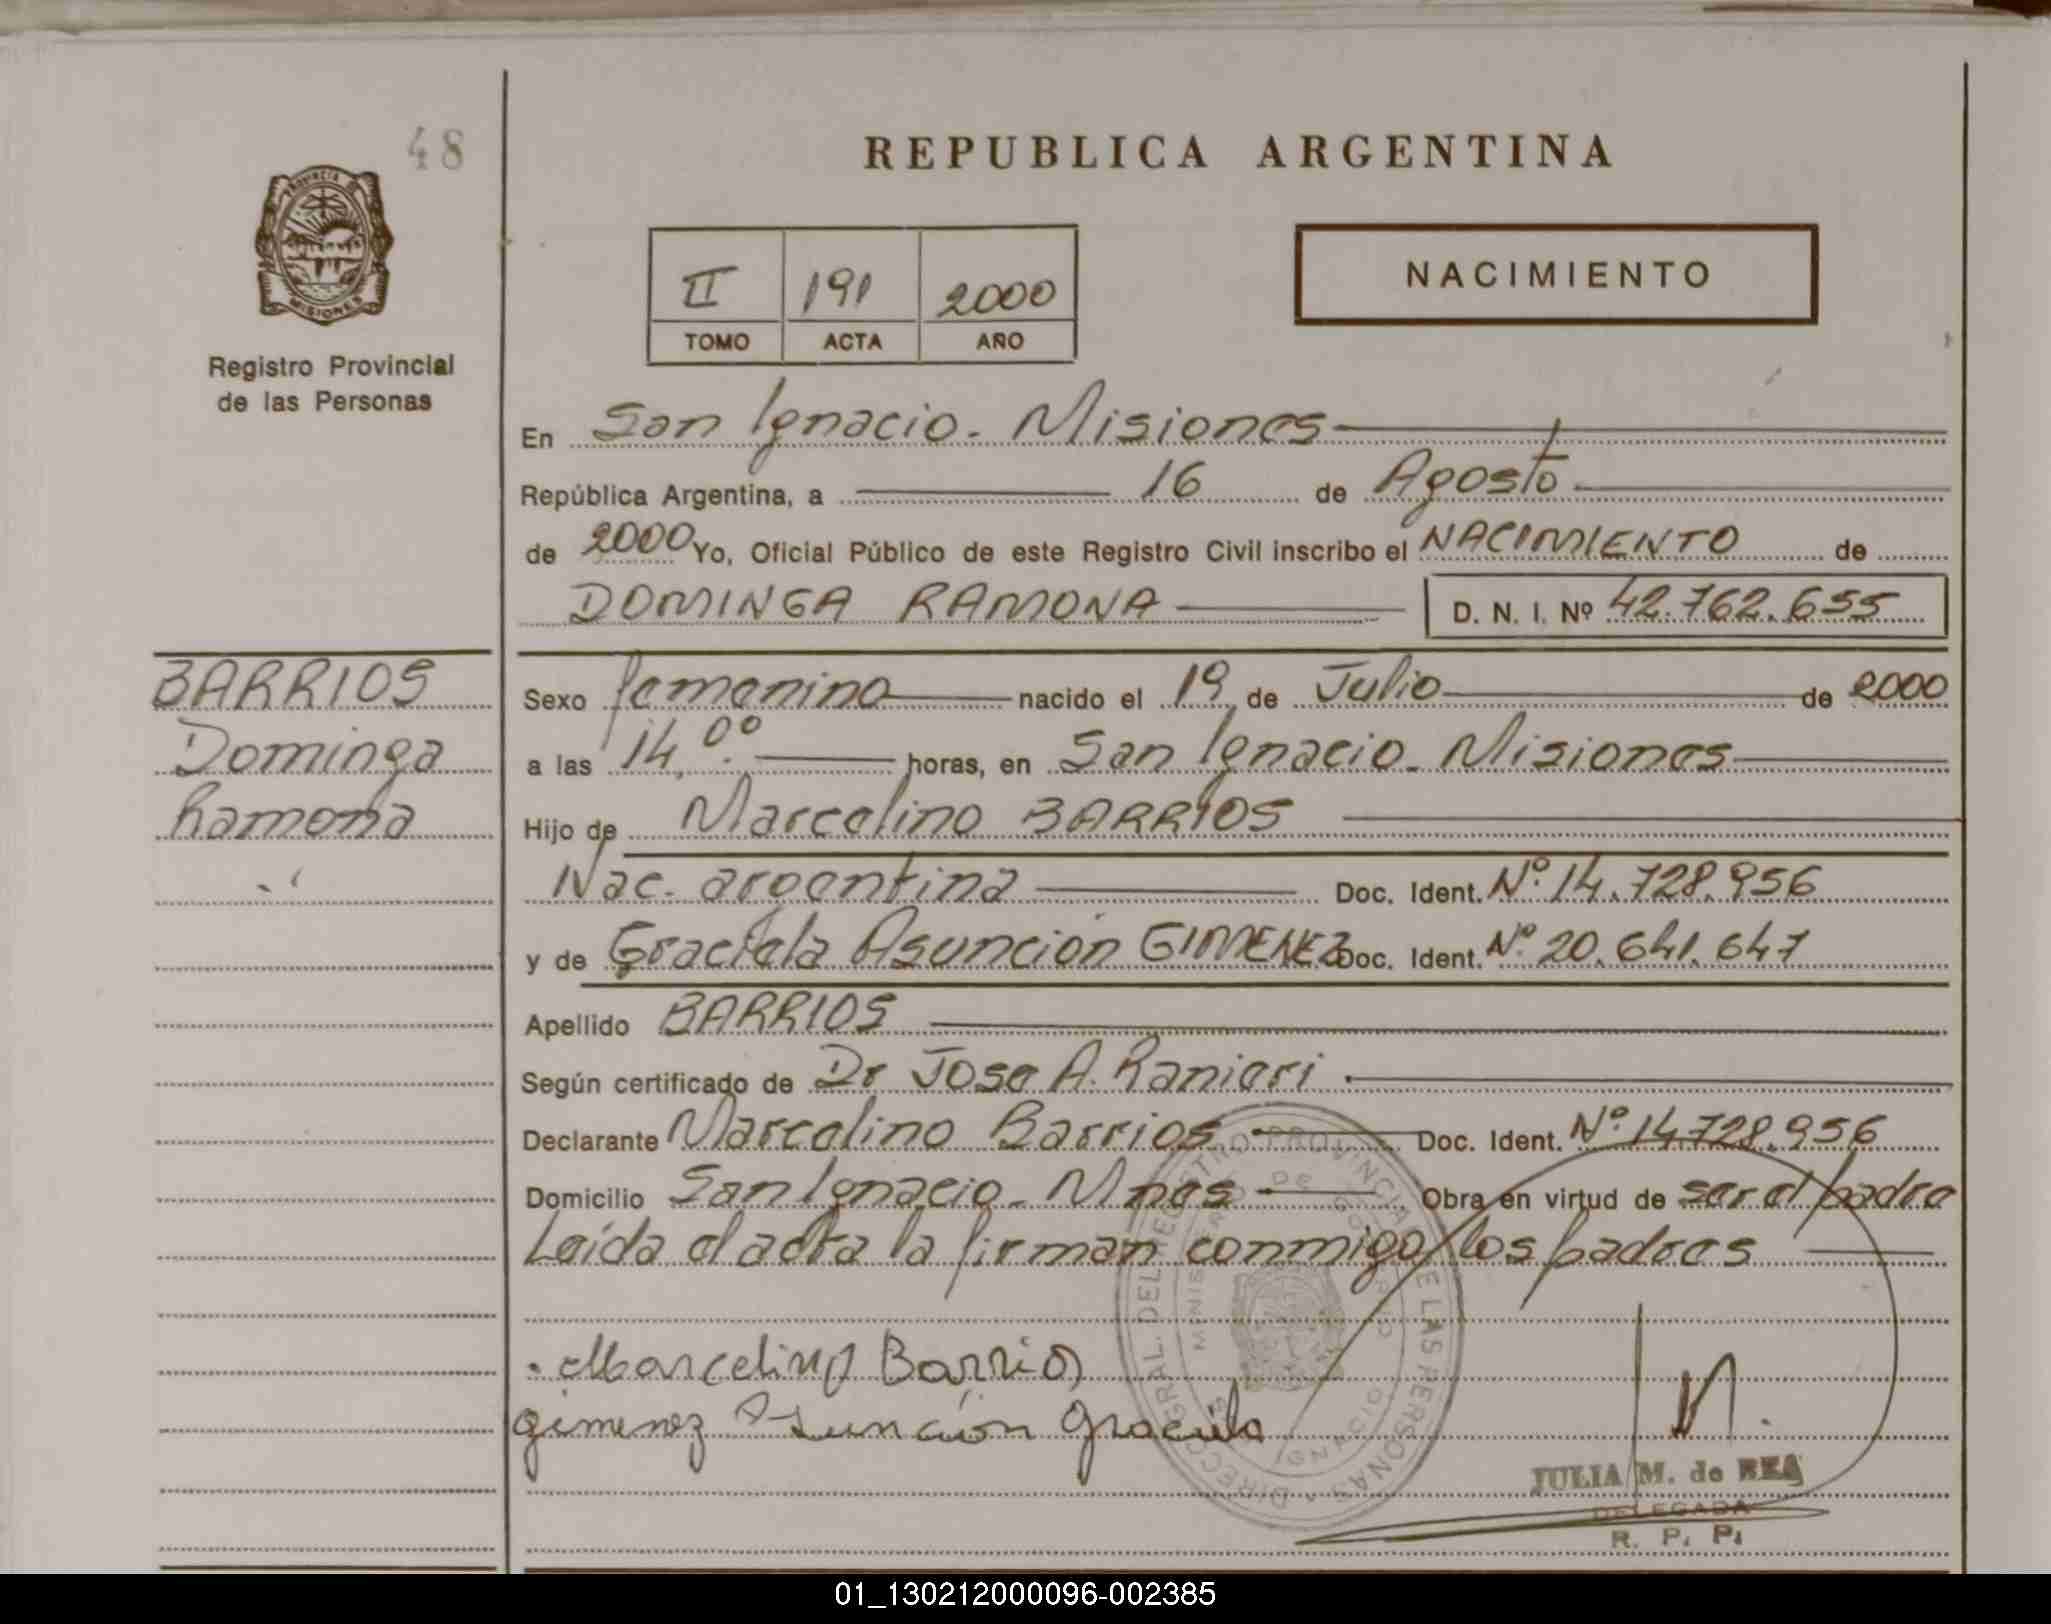 48
REPUBLICA ARGENTINA
PROVINCIA DE
MISIONES
Registro Provincial
de las Personas
II 191 2000
TOMO ACTA AÑO
NACIMIENTO
En San Ignacio. Misiones
República Argentina, a 16 de Agosto
de 2000 Yo, Oficial Público de este Registro Civil inscribo el NACIMIENTO de
DOMINGA RAMONA D. N. I. Nº 42.762.655
BARRIOS
Dominga
Ramona
Sexo femenino nacido el 19 de Julio de 2000
a las 14,00 horas, en San Ignacio. Misiones
Hijo de Marcelino BARRIOS
Nac. argentina Doc. Ident. Nº 14.728.956
y de Graciela Asunción GIMENEZ Doc. Ident. Nº 20.641.647
Apellido BARRIOS
Según certificado de Dr Jose A. Ranieri
Declarante Marcelino Barrios Doc. Ident. Nº 14.728.956
Domicilio San Ignacio. Mnes Obra en virtud de ser el padre
Leída el acta la firman conmigo los padres
Marcelino Barrios
gimenez Asuncion Graciela
DIRECC GRAL. DEL REGISTRO PROVINCIAL DE LAS PERSONAS
MINISTERIO DE GOBIERNO
S. IGNACIO
JULIA M. de REA
DELEGADA
R. P. P.
01_130212000096-002385